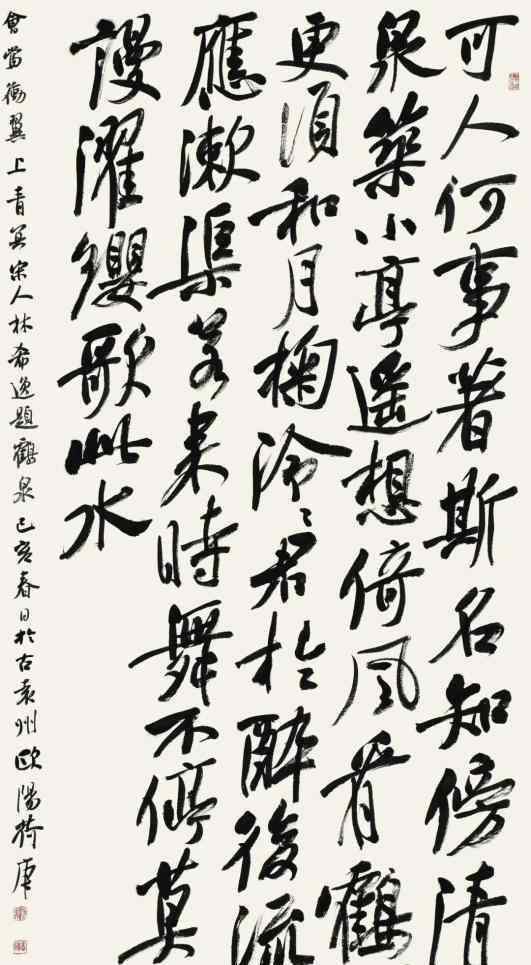 可人何事著斯名知傍清
泉築小亭遙想倚風看鶴
更須和月掬泠〻君於醉後流
應漱渠若来時舞不停莫
謾濯纓歌此水
會當衝翼上青冥宋人林希逸題鶴泉己亥春日於古袁州歐陽荷庚